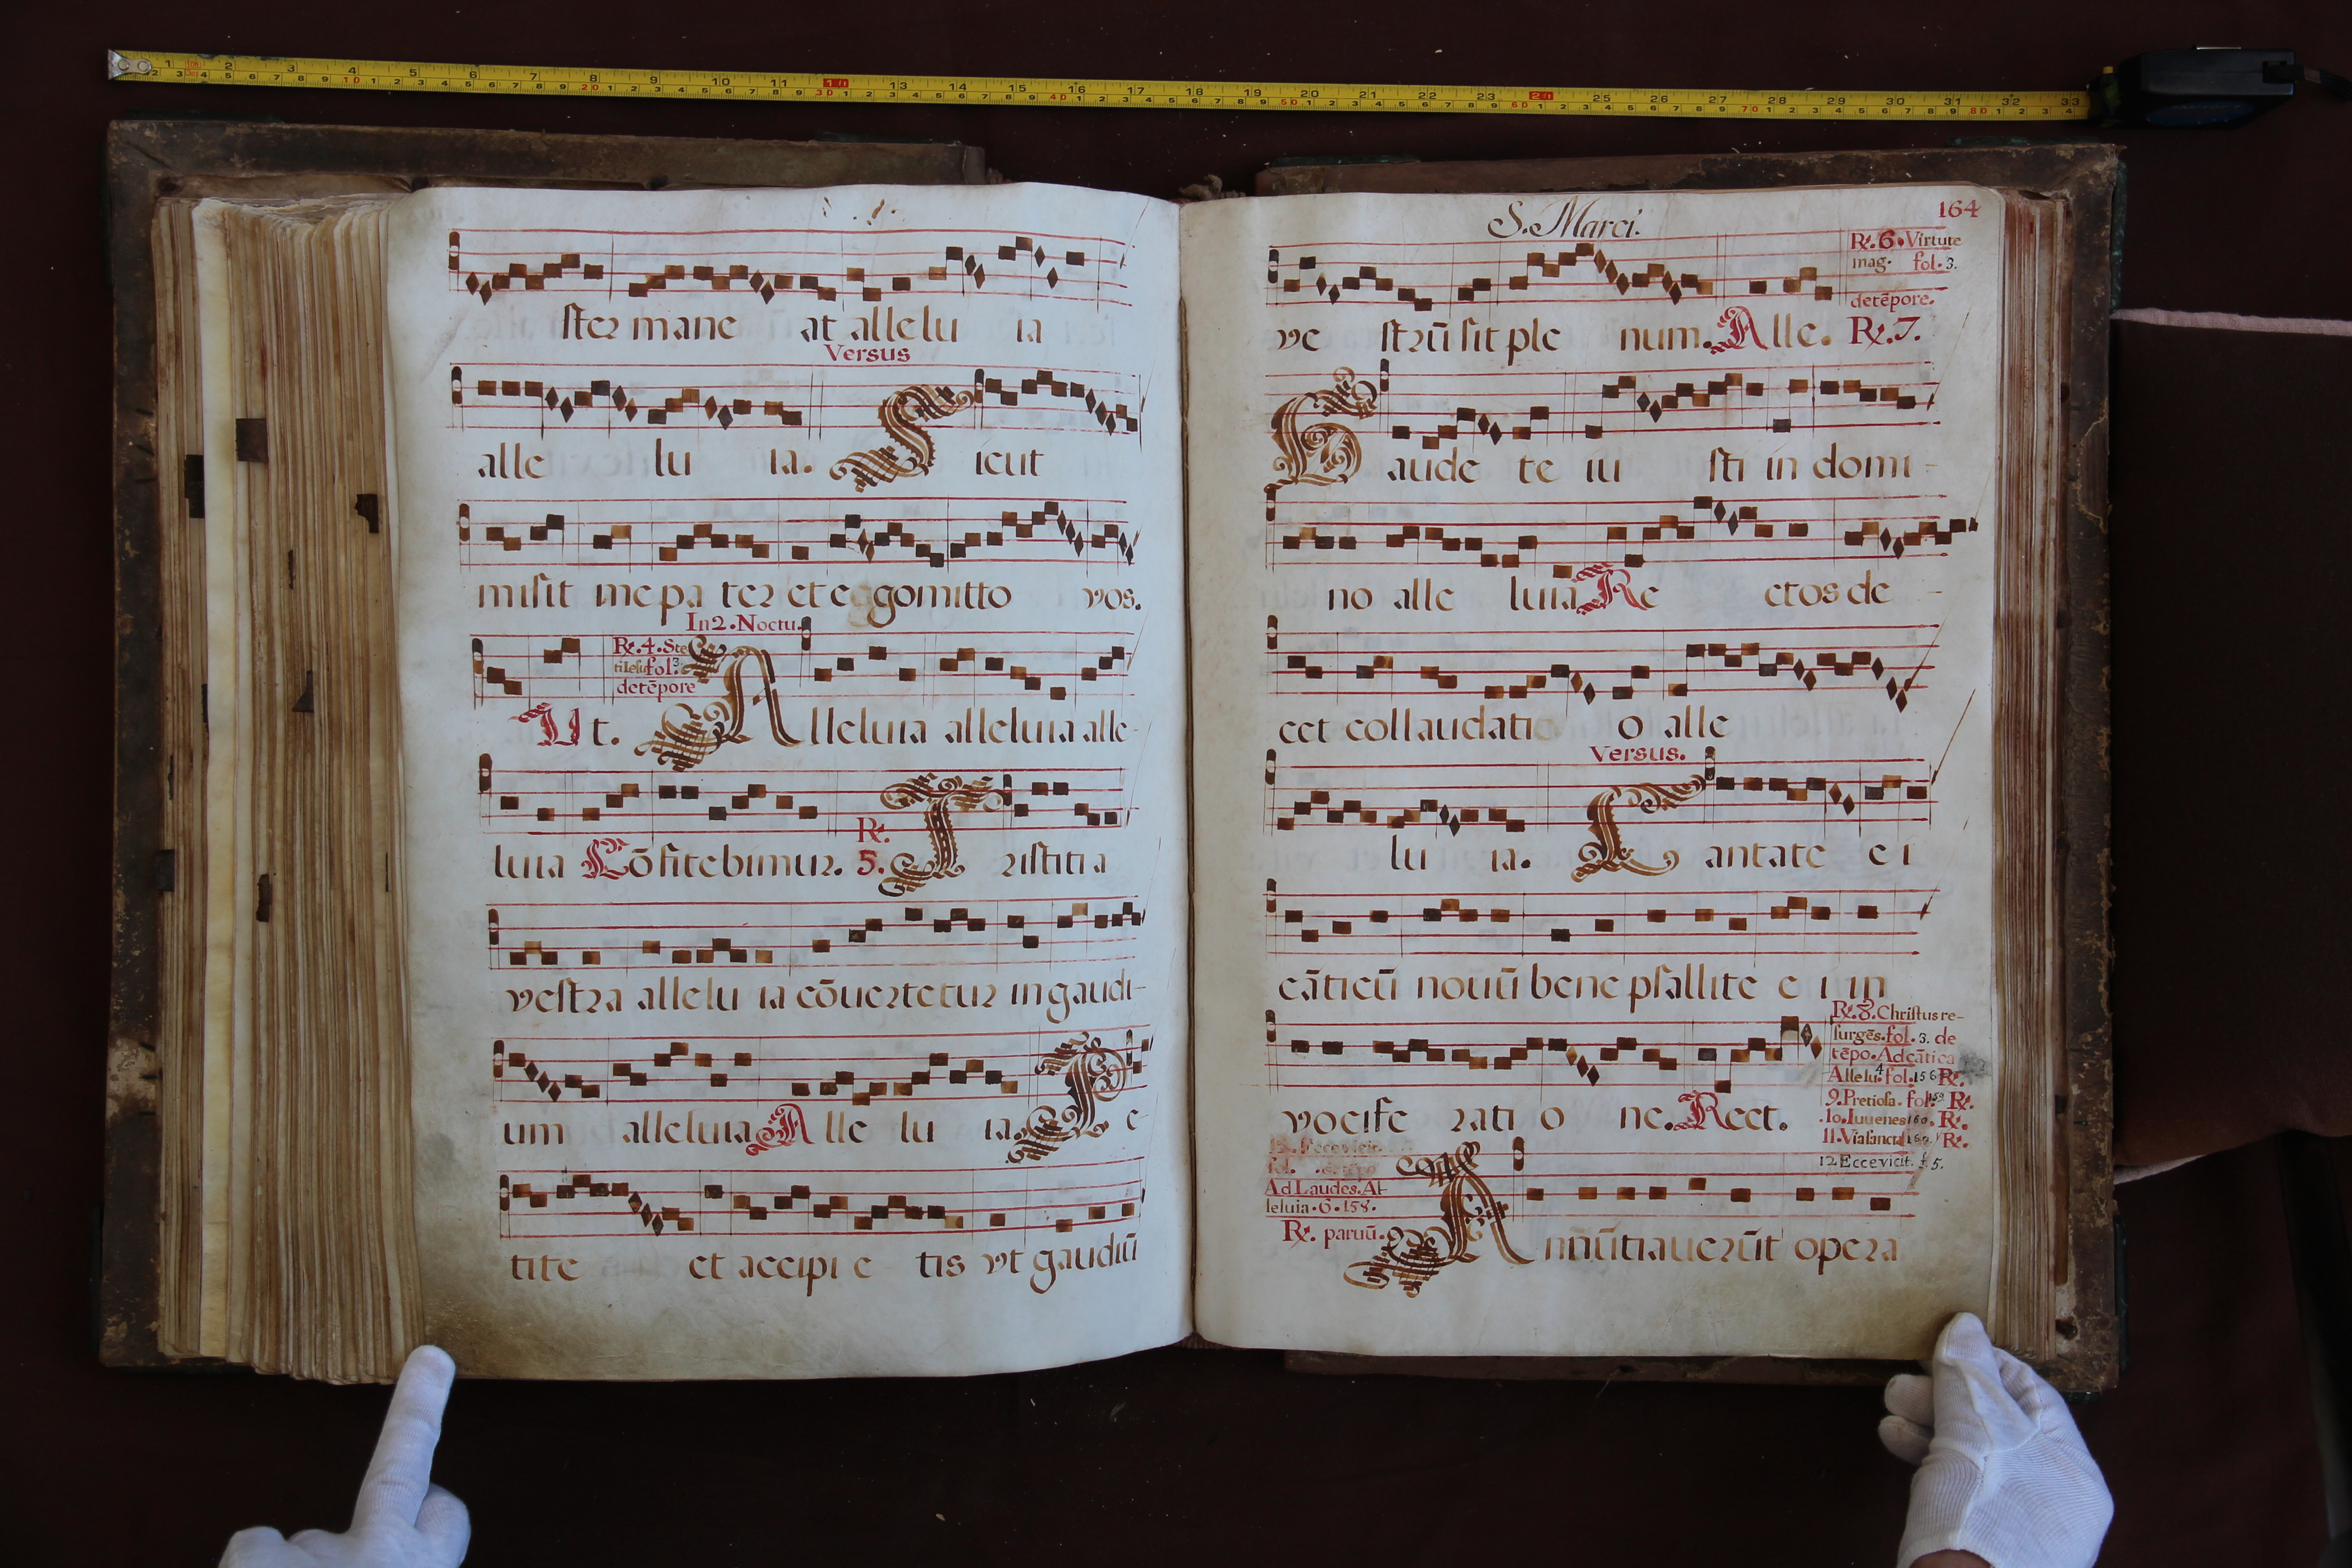 ster mane at allelu ia
Versus
alle lu ia. Sicut
misit me pa ter et eggo mitto vos.
In 2. Noctu.
R. 4. Ste
fol. 3
detẽpore
Ut. Alleluia alleluia alle-
luia Cõfitebimur. R. 5. Tristitia
vestra allelu ia cõuertetur in gaudi-
um alleluia Alle lu ia. Pe-
tite et accipi e tis vt gaudiũ
S. Marci.
164
R. 6. Virtute
mag. fol. 3.
detẽpore.
ve strũ sit ple num. Alle. R. 7.
Gaude te iu sti in domi-
no alle luia Re ctos de-
cet collaudatio o alle
Versus.
lu ia. Cantate ei
cãticũ nouũ bene psallite e i in
vocife rati o ne. Rect.
R. 8. Christus re-
surgẽs. fol. 3. de
tẽpo. Ad cãtica
Allelu. 4 fol. 156 R.
9. Pretiosa. fol. 159 R.
10. Iuuenes 160. R.
11. Via sancta 160. R.
12 Ecce vicit. f. 5.
Ad Laudes. Al
leluia. 6. 158.
R. paruũ.
Annũtiauerũt opera